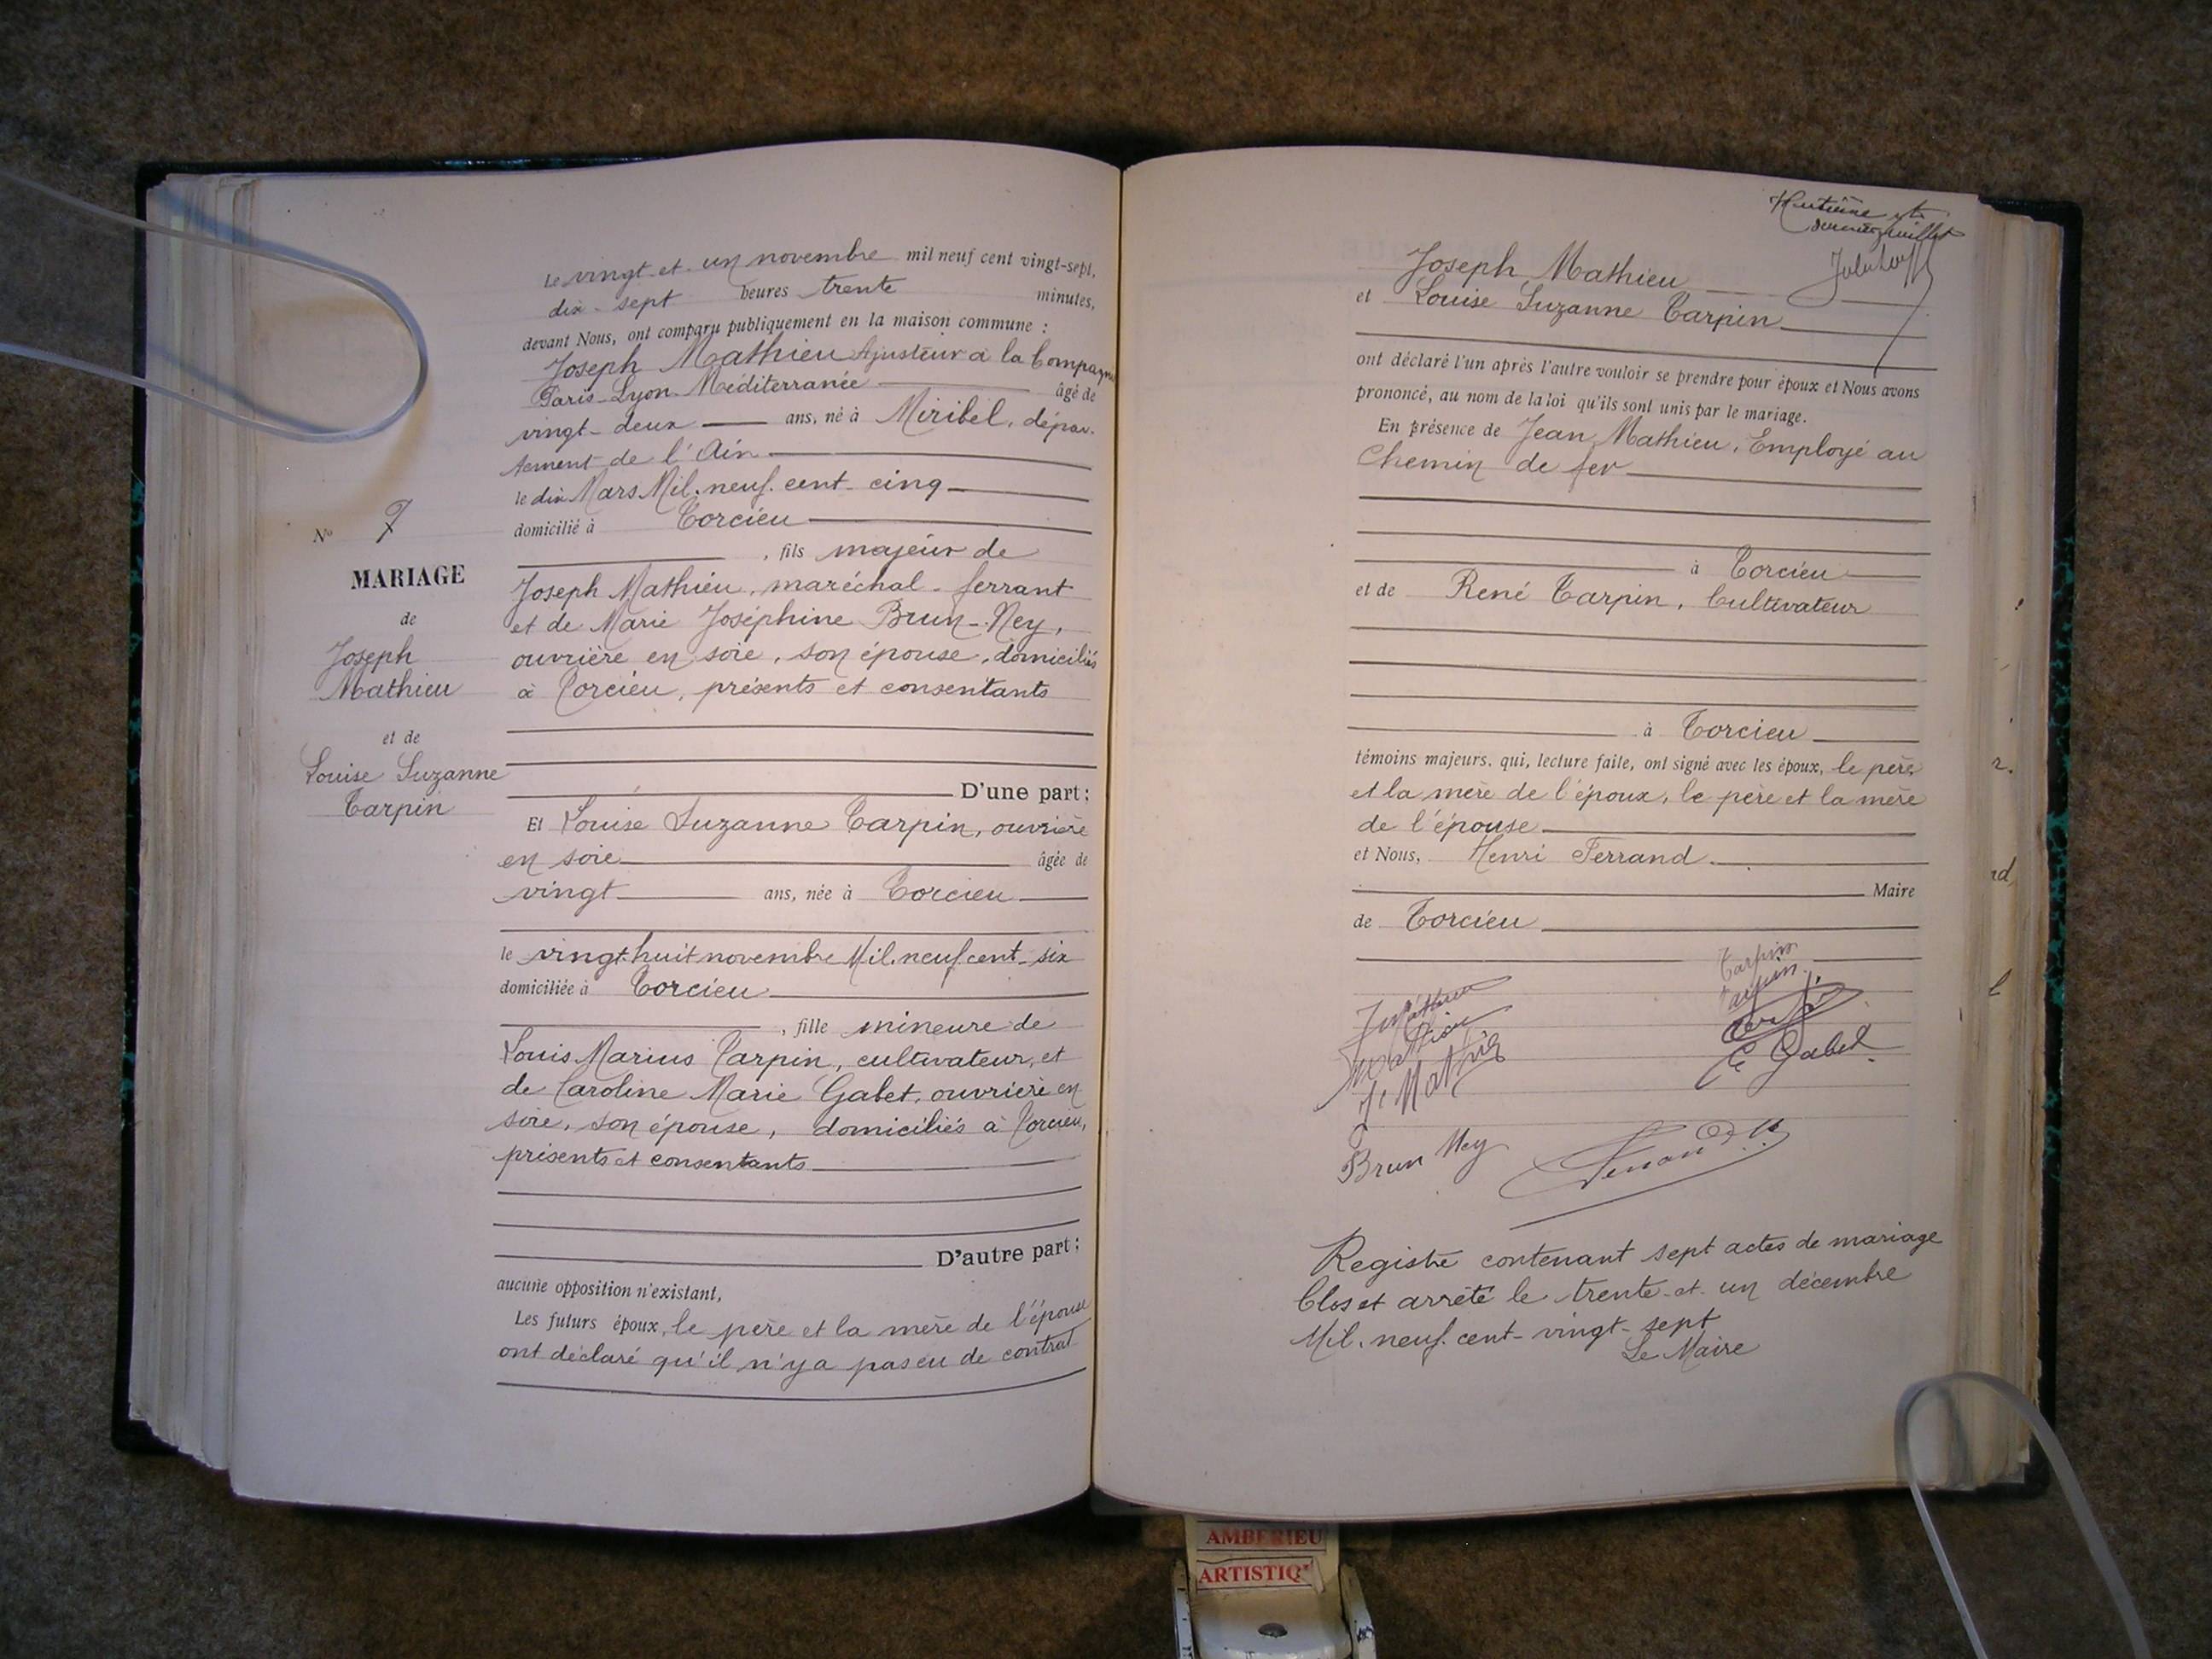 Le vingt et un novembre mil neuf cent vingt-sept,
dix-sept heures trente minutes,
devant Nous, ont comparu publiquement en la maison commune :
Joseph Mathieu Ajusteur à la Compagnie
Paris-Lyon-Méditerranée âgé de
vingt-deux ans, né à Miribel, dépar-
tement de l'Ain
le dix Mars Mil. neuf. cent-cinq
domicilié à Torcieu
, fils majeur de
Joseph Mathieu, maréchal-ferrant
et de Marie Joséphine Brun-Ney,
ouvrière en soie, son épouse, domiciliés
à Torcieu, présents et consentants
D'une part :
Et Louise Suzanne Tarpin, ouvrière
en soie âgée de
vingt ans, née à Torcieu
le vingt-huit novembre Mil. neuf cent-six
domiciliée à Torcieu
, fille mineure de
Louis Marius Tarpin, cultivateur, et
de Caroline Marie Gabet, ouvrière en
soie, son épouse, domiciliés à Torcieu,
présents et consentants
D'autre part :
aucune opposition n'existant,
Les futurs époux, le père et la mère de l'épouse
ont déclaré qu'il n'y a pas eu de contrat
No 7
MARIAGE
de
Joseph
Mathieu
et de
Louise Suzanne
Tarpin
Huitième et
dernier feuillet
Joseph Mathieu
et Louise Suzanne Tarpin
ont déclaré l'un après l'autre vouloir se prendre pour époux et Nous avons
prononcé, au nom de la loi qu'ils sont unis par le mariage.
En présence de Jean Mathieu, Employé au
Chemin de fer
à Torcieu
et de René Tarpin, Cultivateur
à Torcieu
témoins majeurs, qui, lecture faite, ont signé avec les époux, le père
et la mère de l'époux, le père et la mère
de l'épouse
et Nous, Henri Ferrand
Maire
de Torcieu
Tarpin
Tarpin
C Gabet
J. Mathieu
Brun Ney
Ferrand
Registre contenant sept actes de mariage
Clos et arrêté le trente-et-un décembre
Mil. neuf. cent-vingt-sept
Le Maire
AMBERIEU
ARTISTIQ